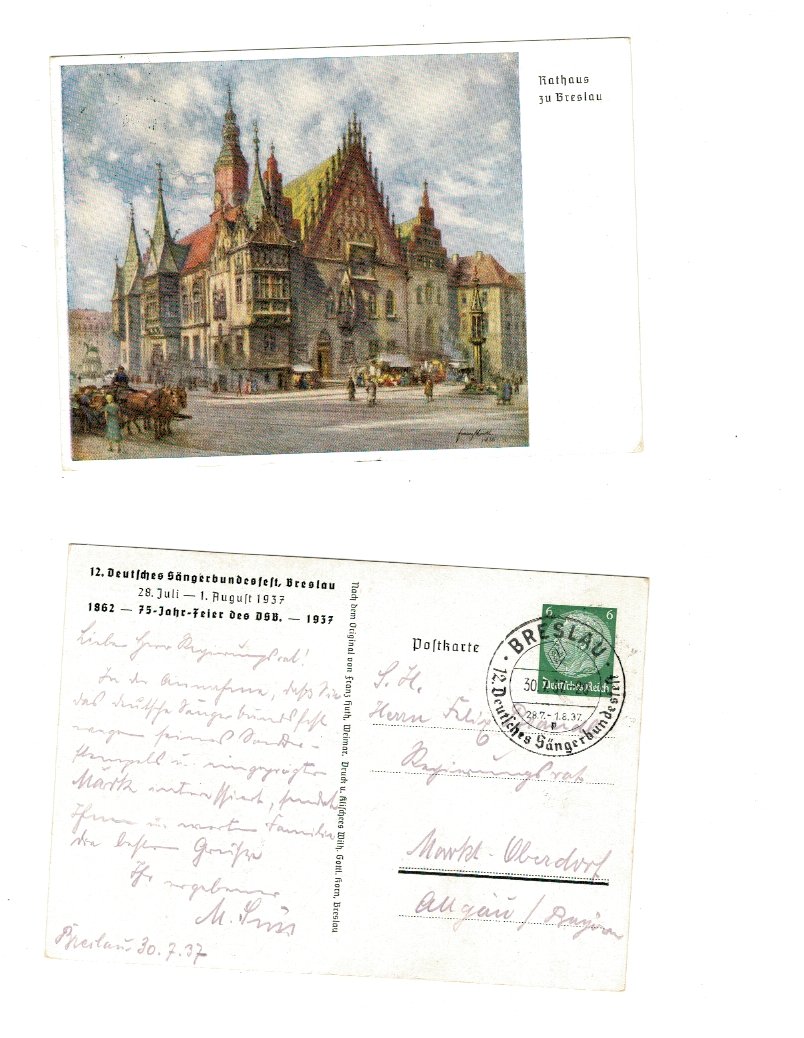 Rathaus
zu Breslau
12. Deutsches Sängerbundesfest, Breslau
28. Juli — 1. August 1937
1862 — 75-Jahr-Feier des DSB. — 1937
Lieber Herr Regierungsrat!
In der Annahme, daß Sie
das deutsche Sängerbundesfest
wegen seines Sonder-
stempels u. eingeprägter
Mark interessiert, sendet
Ihnen u. werten Familie
die besten Grüße
Ihr ergebener
M.
Breslau 30.7.37
Nach dem Original von Franz Huth, Weimar. Druck u. Klischees Wilh. Gottl. Korn, Breslau
Postkarte
6 6
Deutsches Reich
BRESLAU
30.
28.7.-1.8.37
12. Deutsches Sängerbundesfest
S. H.
Herrn Felix
Regierungsrat
Markt-Oberdorf
Allgäu / Bayern